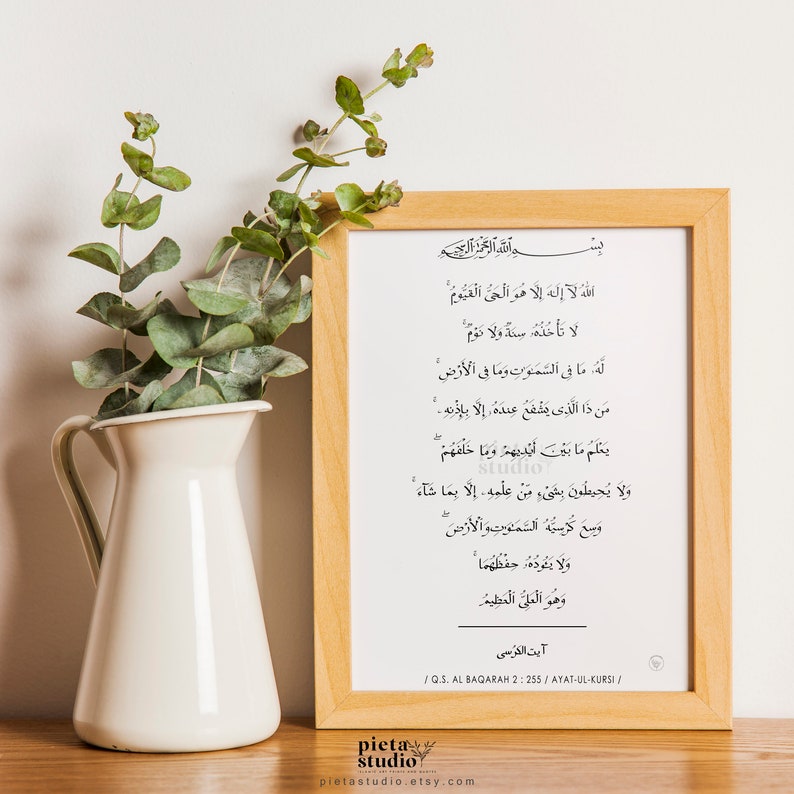 بِسْمِ ٱللَّهِ ٱلرَّحْمَٰنِ ٱلرَّحِيمِ
ٱللَّهُ لَآ إِلَٰهَ إِلَّا هُوَ ٱلْحَىُّ ٱلْقَيُّومُ ۚ
لَا تَأْخُذُهُۥ سِنَةٌ وَلَا نَوْمٌ ۚ
لَّهُۥ مَا فِى ٱلسَّمَٰوَٰتِ وَمَا فِى ٱلْأَرْضِ ۗ
مَن ذَا ٱلَّذِى يَشْفَعُ عِندَهُۥٓ إِلَّا بِإِذْنِهِۦ ۚ
يَعْلَمُ مَا بَيْنَ أَيْدِيهِمْ وَمَا خَلْفَهُمْ ۖ
وَلَا يُحِيطُونَ بِشَىْءٍ مِّنْ عِلْمِهِۦٓ إِلَّا بِمَا شَآءَ ۚ
وَسِعَ كُرْسِيُّهُ ٱلسَّمَٰوَٰتِ وَٱلْأَرْضَ ۖ
وَلَا يَـُٔودُهُۥ حِفْظُهُمَا ۚ
وَهُوَ ٱلْعَلِىُّ ٱلْعَظِيمُ
آيت الكرسى
/ Q.S. AL BAQARAH 2 : 255 / AYAT-UL-KURSI /
pieta
studio
pieta
studio
ISLAMIC ART PRINTS AND QUOTES
pietastudio.etsy.com